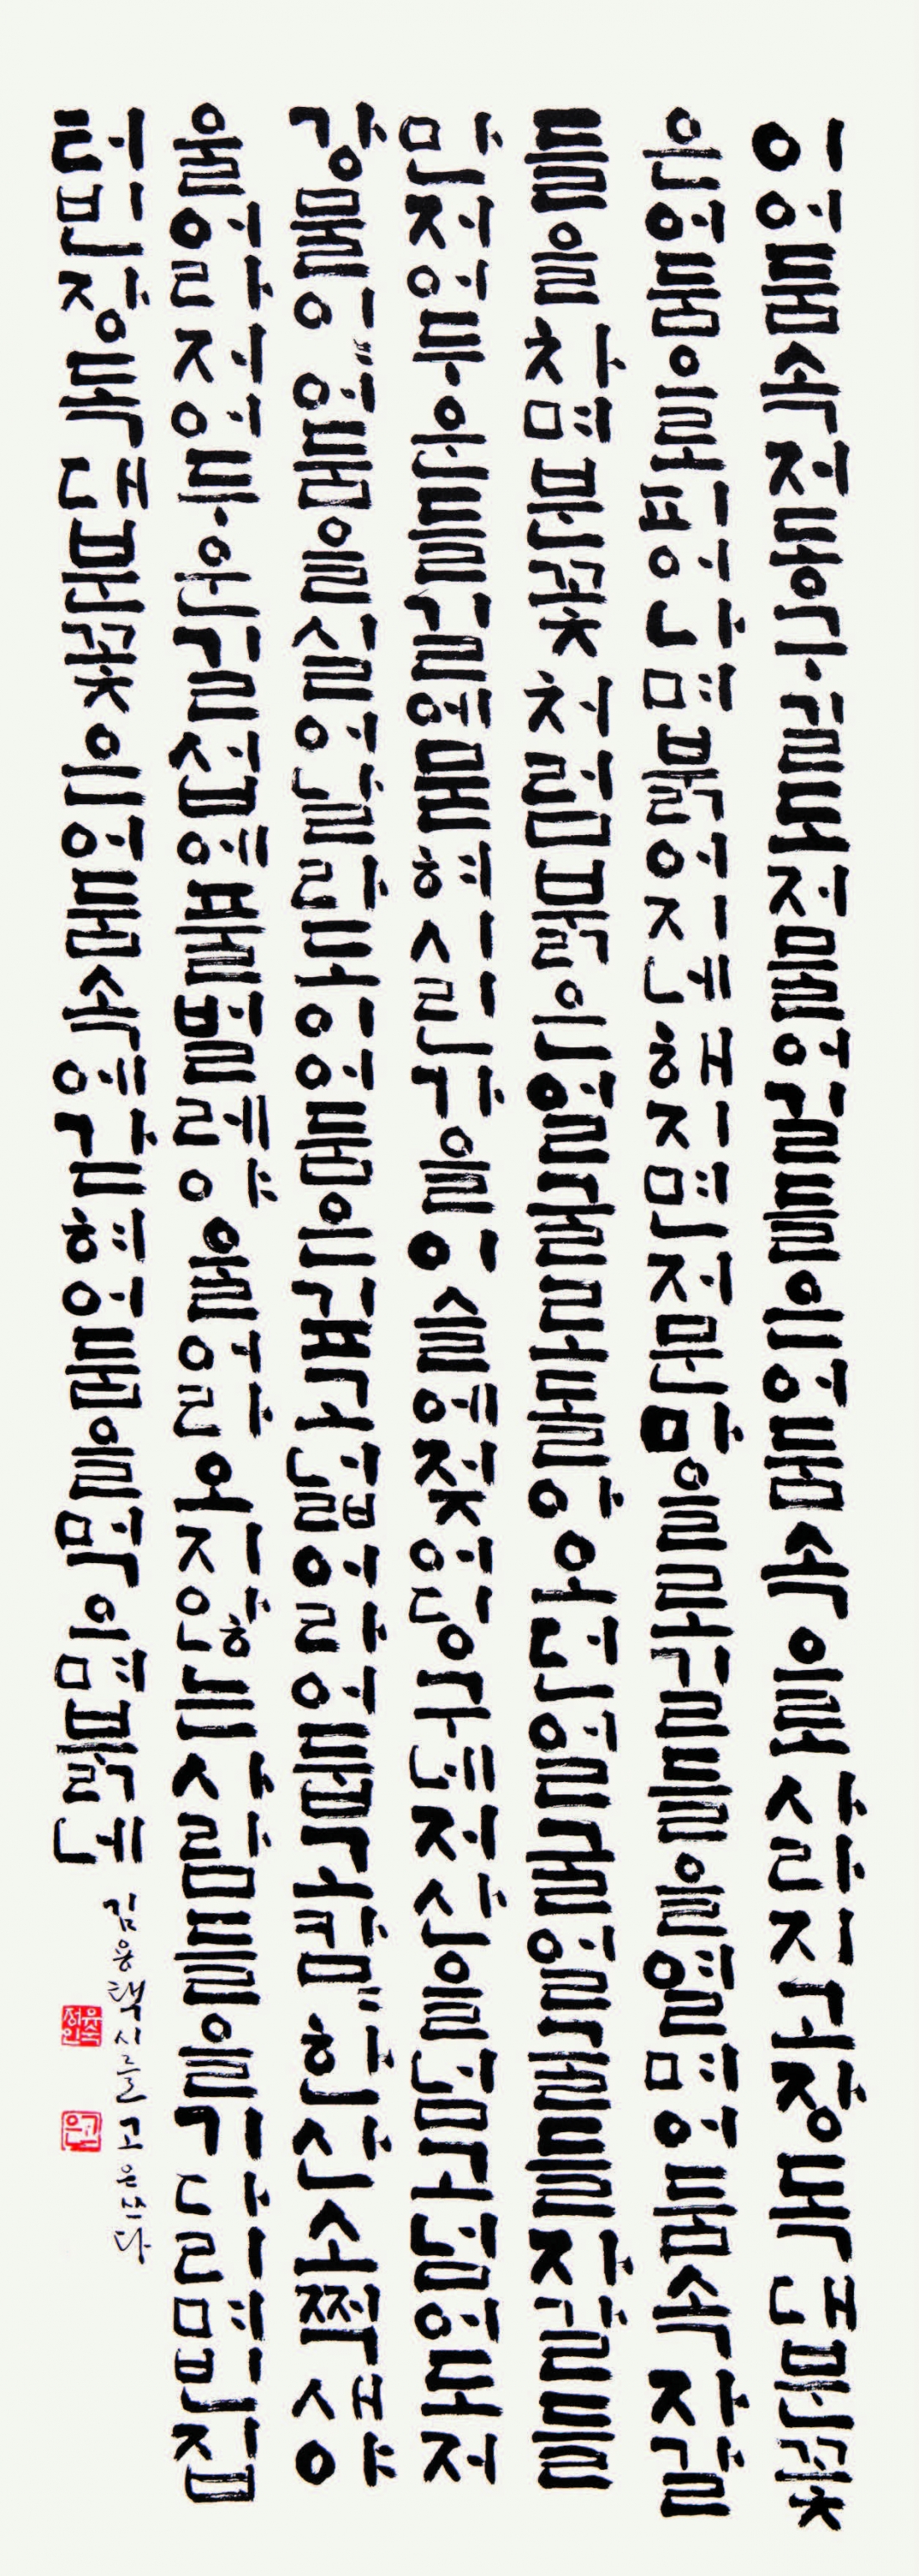 이 어둠 속 저 동구 길도 저물어 길들은 어둠 속으로 사라지고 장독대 분꽃
은 어둠으로 피어나며 붉어지네 해지면 저문 마을로 길들을 열며 어둠 속 자갈
들을 차며 분꽃처럼 붉은 얼굴로 돌아오던 얼굴 얼굴들 자갈들
만 저 어두운 들길에 묻혀 시린 가을 이슬에 젖어 딩구네 저 산을 넘고 넘어도 저
강물이〃 어둠을 실어 날라도 이 어둠은 깊고 넓어라 어둡고 캄〃한 산 소쩍새야
울어라 저 어두운 길섭에 풀벌레야 울어라 오지 않는 사람들을 기다리며 빈집
터 빈 장독대 분꽃은 어둠 속에 갇혀 어둠을 먹으며 붉네
김용택 시를 고은 쓰다